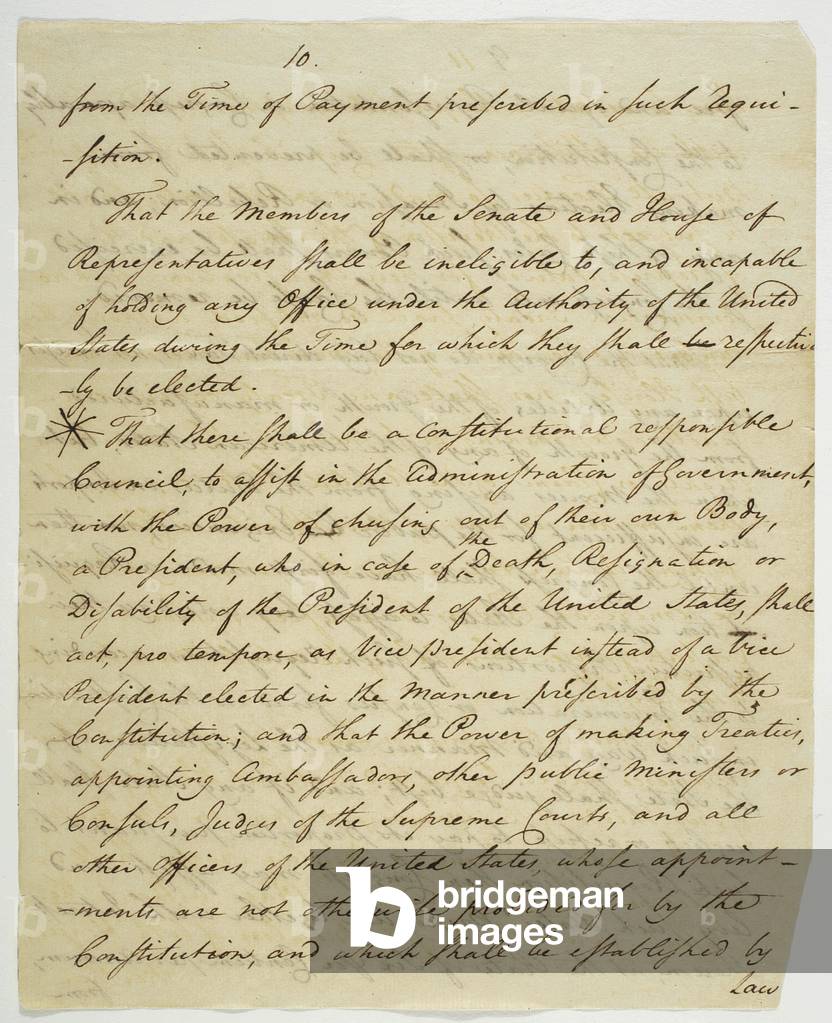 10.
from the Time of Payment prescribed in such Requi-
-sition.
That the Members of the Senate and House of
Representatives shall be ineligible to, and incapable
of holding any Office under the Authority of the United
States, during the Time for which they shall be respectiv
-ly be elected.
* That there shall be a Constitutional responsible
Council, to assist in the Administration of Government,
with the Power of chusing out of their own Body,
a President, who in case of the Death, Resignation or
Disability of the President of the United States, shall
act, pro tempore, as Vice President instead of a Vice
President elected in the Manner prescribed by the
Constitution; and that the Power of making Treaties,
appointing Ambassadors, other public Ministers or
Consuls, Judges of the Supreme Courts, and all
other Officers of the United States, whose appoint-
-ments are not otherwise provided for by the
Constitution, and which shall be established by
Law
bridgeman
images